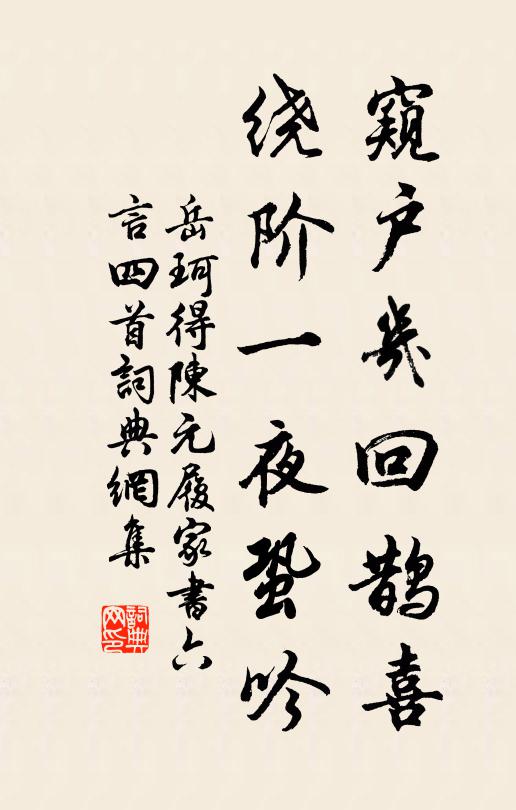 窥户幾回鹊喜
绕阶一夜蛩吟
岳珂得陳元履家書六
言四首詞典網集
詞典网印